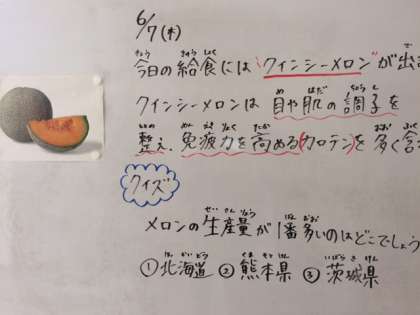 6/7(木)
今日の給食には"クインシーメロン"が出
クインシーメロンは目や肌の調子を
整え、免疫力を高める(カロテン)を多く含
クイズ
メロンの生産量が1番多いのはどこでしょう
①北海道 ②熊本県 ③茨城県